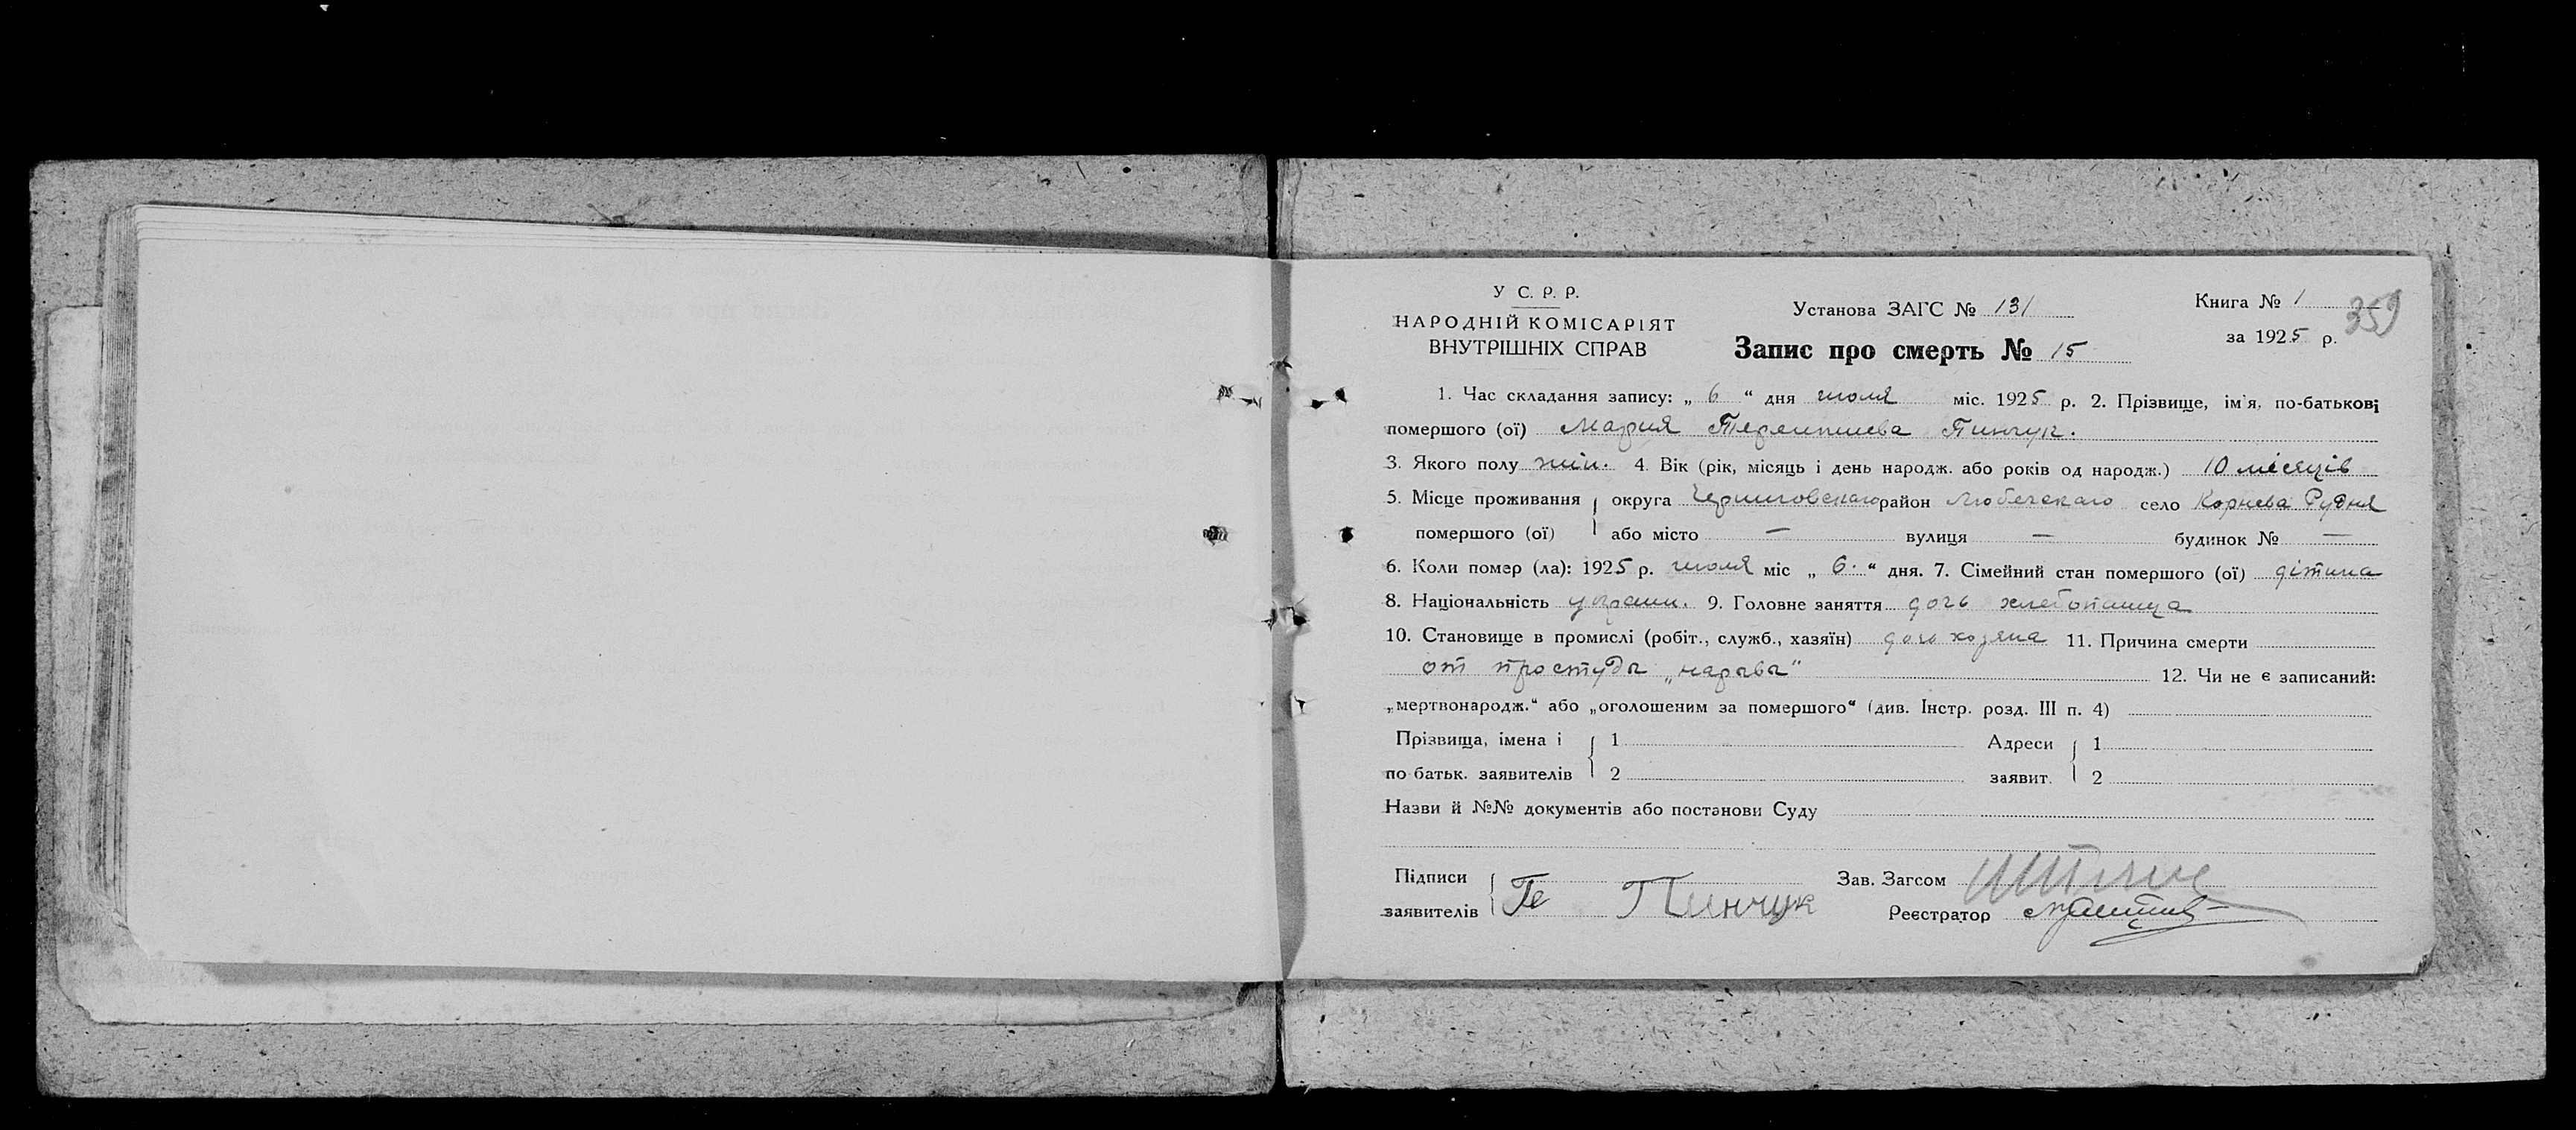 У С. Р. Р.
НАРОДНІЙ КОМІСАРІЯТ
ВНУТРІШНІХ СПРАВ
Установа ЗАГС № 131
Запис про смерть № 15
Книга № 1
за 1925 р.
359
1. Час складання запису: „ 6 “ дня июля міс. 1925 р. 2. Прізвище, ім'я, по-батькові
помершого (ої) Мария Терентиева Пинчук.
3. Якого полу жін. 4. Вік (рік, місяць і день народж. або років од народж.) 10 місяців
5. Місце проживання округа Черниговскаго район Любечскаго село Корнева Рудня
помершого (ої) або місто — вулиця — будинок № —
6. Коли помер (ла): 1925 р. июля міс „ 6. “ дня. 7. Сімейний стан помершого (ої) дітина
8. Національність украин. 9. Головне заняття дочь хлебопашца
10. Становище в промислі (робіт., служб., хазяїн) дочь хозяина 11. Причина смерти
от простуды „нарыва“
12. Чи не є записаний:
„мертвонародж.“ або „оголошеним за помершого“ (див. Інстр. розд. III п. 4)
Прізвища, імена і 1 Адреси 1
по батьк. заявителів 2 заявит. 2
Назви й №№ документів або постанови Суду
Підписи Зав. Загсом
заявителів Те Пинчук Реєстратор